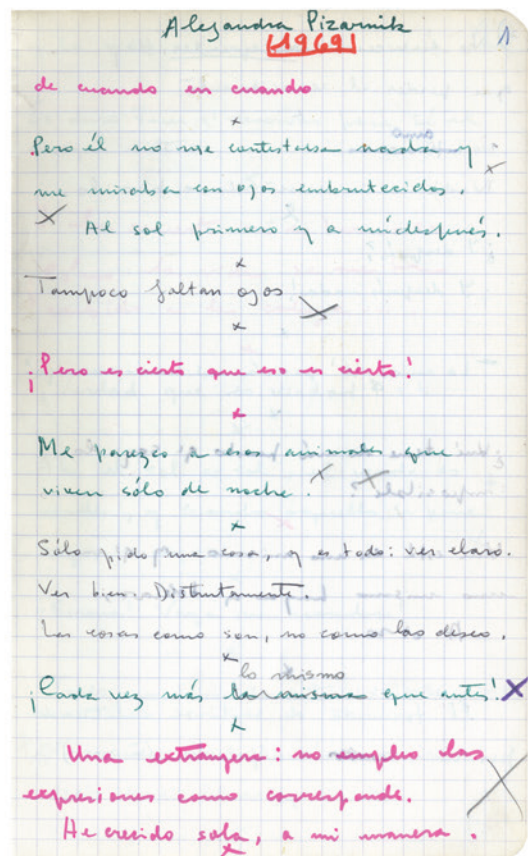 Alejandra Pizarnik
1
1969
de cuando en cuando
Pero él no me contestaba nada y
me miraba con ojos embrutecidos.
Al sol primero y a mí después.
Tampoco faltan ojos
¡Pero es cierto que eso es cierto!
Me parezco a esos animales que
viven sólo de noche.
Sólo pido una cosa, y es todo: ver claro.
Ver bien. Distintamente.
Las cosas como son, no como las deseo.
lo mismo
¡Cada vez más que antes!
Una extranjera: no empleo las
expresiones como corresponde.
He crecido sola, a mi manera.